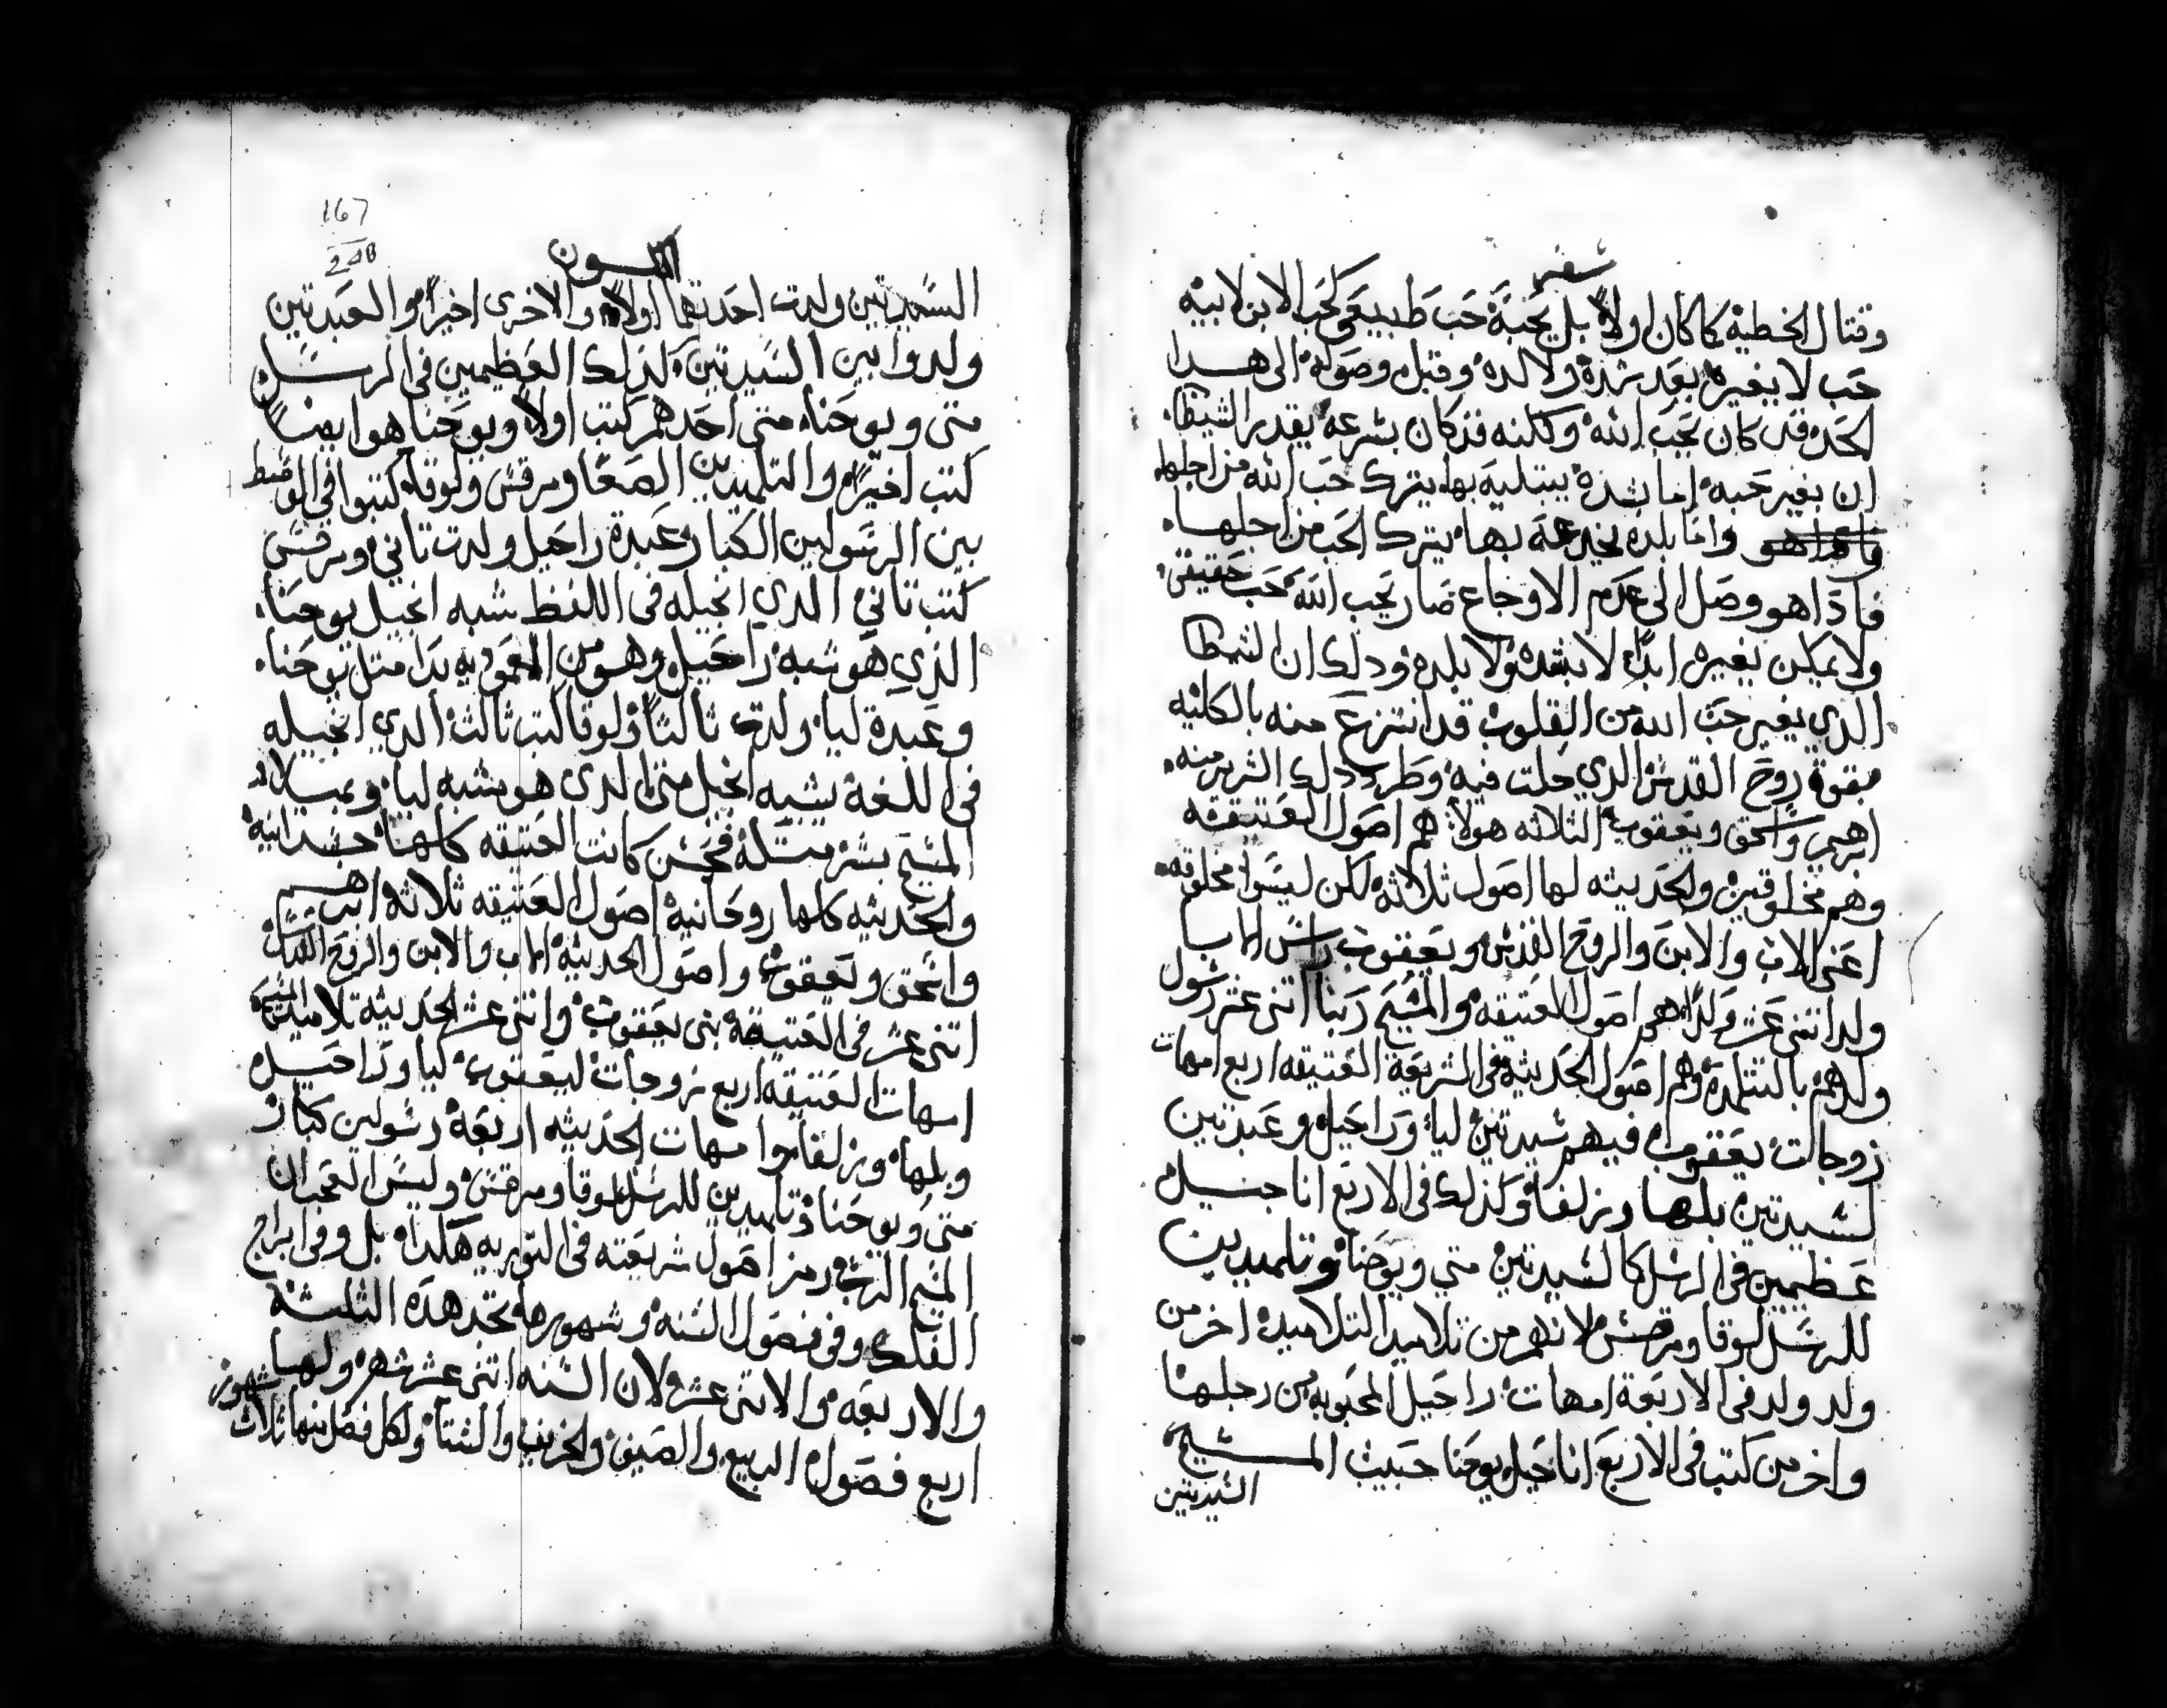 سفر
وقتال الخطية كما كان اولاً بل يحبه حب طبيعى كحب الابن لابيه
حب لا يغيره بعد شده ولا لده وقبل وصوله الى هدا
الحد قد كان يحب الله ولكنه قد كان بسرعه يقدر الشيطا
ان يغير حبه اما بشده يبتليه بها يترك حب الله من اجلها
واما بلده يخدعه بها يترك الحب من اجلها
فاذا هو وصل الى عدم الاوجاع صار يحب الله حب حقيقى
ولا يمكن تغييره ابدًا لا بشده ولا بلده ودلك ان الشيطا
الدي يغير حب الله من القلوب قد انتزع منه بالكليه
بقوة روح القدس الدي حلت فيه وطرد دلك الشرير منه
ابرهيم واسحق ويعقوب الثلاثه هولا هم اصول العتيقه
وهم مخلوقين والحديثه لها اصول ثلاثه لكن ليسوا مخلوقه
اعنى الاب والابن والروح القدس ويعقوب راس الاباب
ولد اتنى عشر ولدًا هم اصول العتيقه والمسيح ربنا اتنى عشر رسول
ولدهم بالتتلمده وهم اصول الحديثه فى الشريعة العتيقه اربع امهات
زوجات يعقوب فيهم سيدتين ليا وراحيل وعبدتين
لسيدتين بلها وزلفا وكذلك فى الاربع اناجيل
عظيمين فى الرسل كالسيدتين متي ويوحنا وتلميدين
للرسل لوقا ومرقس لانهم من تلاميد التلاميده اخر من
ولد ولد فى الاربعة امهات راحيل المحبوبه من رجلها
واخر من كتب فى الاربع اناجيل يوحنا حبيب المسيح
السيدتين
167
التكون
السيدتين ولدت احدتهما اولاً والاخرى اخيرًا والعبدتين
ولدوا بين السيدتين لذلك العظيمين فى الرسل
متى ويوحنا متى احدهم كتب اولاً ويوحنا هو ايضًا
كتب اخيرًا والتلميدين الصغار مرقس ولوقا كتبوا فى الوسط
بين الرسولين الكبار وعبدة راحيل ولدت تاني ومرقس
كتب تاني الدي انجيله فى اللفظ شبه انجيل يوحنا
الذي هو شبه راحيل وهو من المعموديه بدا متل يوحنا
وعبدة ليا ولدت ثالثًا ولوقا كتب ثالث الدي انجيله
فى اللغة يشبه انجيل متى الدى هو مشبه ليا وبميلاد
المسيح بشر متله فحسن كانت العتيقه كلها جسدانيه
والحديثه كلها روحانيه اصول العتيقه ثلاثه ابرهيم
واسحق ويعقوب واصول الحديثه الاب والابن والروح القدس
اتنى عشر فى العتيقه بنى يعقوب واتنى عشر الحديثه تلاميد المسيح
امهات العتيقه اربع زوجات ليعقوب ليا وراحيل
وبلها وزلفا وامهات الحديثه اربعة رسولين كبار
متى ويوحنا وتلميدين للرسل لوقا ومرقس وليس العجب ان
المسيح الرب رمز اصول شريعته فى التوريه هكدا بل وفى ابراج
الفلك وفى فصول السنه وشهورها تجد هذه الثلثة
والاربعه والاتنى عشر لان السنه اتنى عشر شهر ولها
اربع فصول الربيع والصيف والخريف والشتا ولكل فصل منها ثلاث
شهور